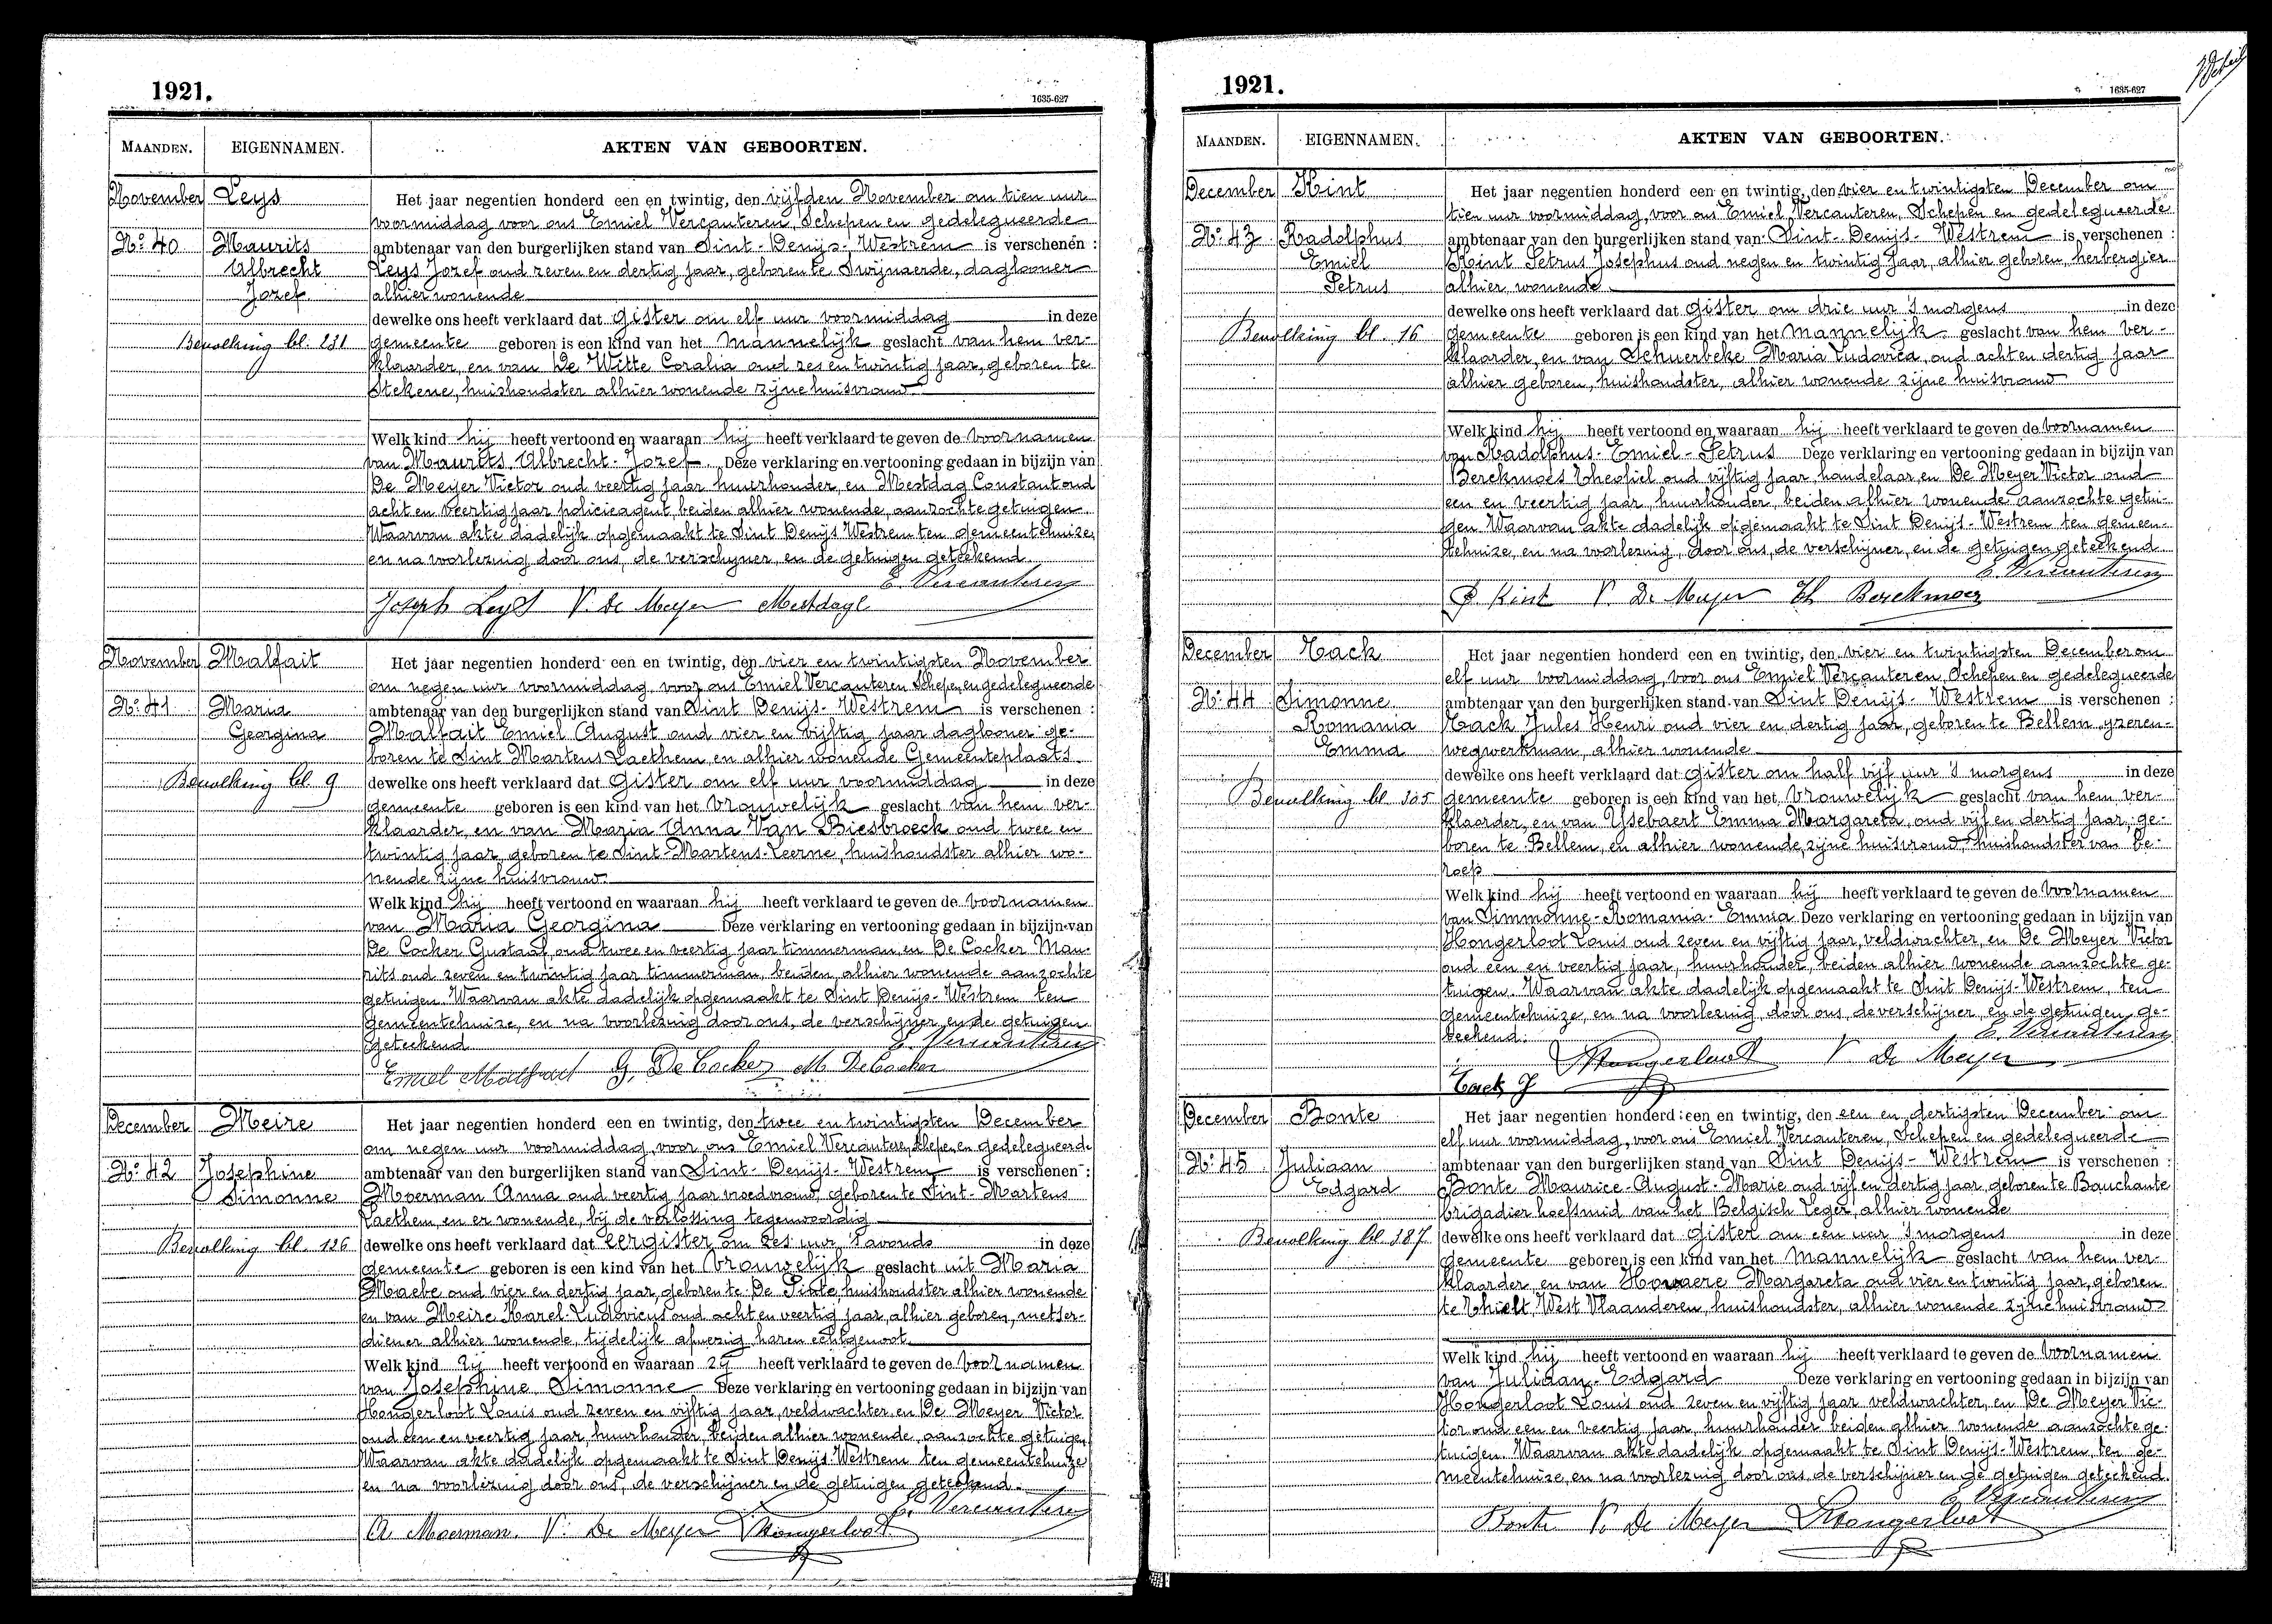 1921.
1635-627
MAANDEN. EIGENNAMEN. AKTEN VAN GEBOORTEN.
November Leys Het jaar negentien honderd een en twintig, den vijfden November om tien uur
voormiddag voor ons Emiel Vercauteren, Schepen en gedelegueerde
No 40 Maurits ambtenaar van den burgerlijken stand van Sint-Denijs-Westrem is verschenen :
Albrecht Leys Jozef oud zeven en dertig jaar, geboren te Swijnaerde, daglooner
Jozef alhier wonende
dewelke ons heeft verklaard dat gister om elf uur voormiddag in deze
Bevolking bl. 231 gemeente geboren is een kind van het mannelijk geslacht van hem ver-
klaarder, en van De Witte Coralia oud zes en twintig jaar, geboren te
Stekene, huishoudster alhier wonende zijne huisvrouw
Welk kind hij heeft vertoond en waaraan hij heeft verklaard te geven de voornamen
van Maurits Albrecht-Jozef. Deze verklaring en vertooning gedaan in bijzijn van
De Meyer Victor oud veertig jaar huurhouder, en Mestdag Constant oud
acht en veertig jaar policieagent, beiden alhier wonende, aanzochte getuigen
Waarvan akte dadelijk opgemaakt te Sint Denijs Westrem ten gemeentehuize,
en na voorlezing door ons, de verschijner, en de getuigen geteekend.
E. Vercauteren
Joseph Leys V. De Meyer Mestdagl
November Malfait Het jaar negentien honderd een en twintig, den vier en twintigsten November
om negen uur voormiddag, voor ons Emiel Vercauteren Schepen en gedelegueerde
No 41 Maria ambtenaar van den burgerlijken stand van Sint Denijs-Westrem is verschenen :
Georgina Malfait Emiel August oud vier en vijftig jaar daglooner ge-
boren te Sint Martens Laethem, en alhier wonende Gemeenteplaats.
Bevolking bl. 9 dewelke ons heeft verklaard dat gister om elf uur voormiddag in deze
gemeente geboren is een kind van het vrouwelijk geslacht van hem ver-
klaarder, en van Maria Anna Van Biesbroeck oud twee en
twintig jaar, geboren te Sint-Martens-Leerne, huishoudster alhier wo-
nende zijne huisvrouw.
Welk kind hij heeft vertoond en waaraan hij heeft verklaard te geven de voornamen
van Maria Georgina Deze verklaring en vertooning gedaan in bijzijn van
De Cocker Gustaaf, oud twee en veertig jaar timmerman, en De Cocker Mau-
rits oud zeven en twintig jaar timmerman, beiden, alhier wonende aanzochte
getuigen. Waarvan akte dadelijk opgemaakt te Sint Denijs-Westrem ten
gemeentehuize, en na voorlezing door ons, de verschijner en de getuigen
geteekend E. Vercauteren
Emiel Malfait G. De Cocker M. De Cocker
December Meire Het jaar negentien honderd een en twintig, den twee en twintigsten December
om negen uur voormiddag, voor ons Emiel Vercauteren, Schepen en gedelegueerde
No 42 Josephine ambtenaar van den burgerlijken stand van Sint-Denijs-Westrem is verschenen :
Simonne Moerman Anna oud veertig jaar vroedvrouw, geboren te Sint-Martens
Laethem, en er wonende, bij de verlossing tegenwoordig
Bevolking bl. 126 dewelke ons heeft verklaard dat eergister om zes uur 's avonds in deze
gemeente geboren is een kind van het vrouwelijk geslacht uit Maria
Maebe oud vier en dertig jaar, geboren te De Pinte, huishoudster alhier wonende
en van Meire Karel-Ludovicus oud acht en veertig jaar, alhier geboren, metser-
diener alhier wonende, tijdelijk afwezig haren echtgenoot.
Welk kind zij heeft vertoond en waaraan zij heeft verklaard te geven de voornamen
van Josephine Simonne Deze verklaring en vertooning gedaan in bijzijn van
Hongerloot Louis oud zeven en vijftig jaar, veldwachter, en De Meyer Victor
oud een en veertig jaar, huurhouder, beiden alhier wonende, aanzochte getuigen
Waarvan akte dadelijk opgemaakt te Sint Denijs-Westrem ten gemeentehuize
en na voorlezing door ons, de verschijner en de getuigen geteekend.
E. Vercauteren
A. Moerman. V. De Meyer Hongerloot
1921.
1635-627
MAANDEN. EIGENNAMEN. AKTEN VAN GEBOORTEN.
December Kint Het jaar negentien honderd een en twintig, den vier en twintigsten December om
tien uur voormiddag, voor ons Emiel Vercauteren, Schepen en gedelegueerde
No 43 Radolphus ambtenaar van den burgerlijken stand van Sint-Denijs-Westrem is verschenen :
Emiel Kint Petrus Josephus oud negen en twintig jaar, alhier geboren, herbergier
Petrus alhier wonende
dewelke ons heeft verklaard dat gister om drie uur 's morgens in deze
Bevolking bl. 16 gemeente geboren is een kind van het mannelijk geslacht van hem ver-
klaarder, en van Schuerbeke Maria Ludovica, oud acht en dertig jaar
alhier geboren, huishoudster, alhier wonende zijne huisvrouw
Welk kind hij heeft vertoond en waaraan hij heeft verklaard te geven de voornamen
van Radolphus-Emiel-Petrus Deze verklaring en vertooning gedaan in bijzijn van
Berckmoes Theofiel oud vijftig jaar, handelaar, en De Meyer Victor oud
een en veertig jaar, huurhouder, beiden alhier wonende aanzochte getui-
gen. Waarvan akte dadelijk opgemaakt te Sint Denijs-Westrem ten gemeen-
tehuize, en na voorlezing, door ons, de verschijner, en de getuigen geteekend
E. Vercauteren
P Kint V. De Meyer Th Berckmoes
December Tack Het jaar negentien honderd een en twintig, den vier en twintigsten December om
elf uur voormiddag, voor ons Emiel Vercauteren, Schepen en gedelegueerde
No 44 Simonne ambtenaar van den burgerlijken stand van Sint Denijs-Westrem is verschenen :
Romania Tack Jules Henri oud vier en dertig jaar, geboren te Bellem yzeren-
Emma wegwerkman, alhier wonende
dewelke ons heeft verklaard dat gister om half vijf uur 's morgens in deze
Bevolking bl 105 gemeente geboren is een kind van het vrouwelijk geslacht van hem ver-
klaarder, en van Ysebaert Emma Margareta, oud vijf en dertig jaar, ge-
boren te Bellem, en alhier wonende, zijne huisvrouw, huishoudster van be-
roep
Welk kind hij heeft vertoond en waaraan hij heeft verklaard te geven de voornamen
van Simmonne-Romania-Emma Deze verklaring en vertooning gedaan in bijzijn van
Hongerloot Louis oud zeven en vijftig jaar, veldwachter, en De Meyer Victor
oud een en veertig jaar, huurhouder, beiden alhier wonende aanzochte ge-
tuigen. Waarvan akte dadelijk opgemaakt te Sint Denijs-Westrem, ten
gemeentehuize, en na voorlezing, door ons, de verschijner, en de getuigen ge-
teekend. E. Vercauteren
Hongerloot V. De Meyer
Tack J
December Bonte Het jaar negentien honderd een en twintig, den een en dertigsten December om
elf uur voormiddag, voor ons Emiel Vercauteren, Schepen en gedelegueerde
No 45 Juliaan ambtenaar van den burgerlijken stand van Sint Denijs-Westrem is verschenen :
Edgard Bonte Maurice-August-Marie oud vijf en dertig jaar, geboren te Bauchante
brigadier hoefsmid van het Belgisch Leger, alhier wonende
Bevolking bl. 187 dewelke ons heeft verklaard dat gister om een uur 's morgens in deze
gemeente geboren is een kind van het mannelijk geslacht van hem ver-
klaarder en van Hovaere Margareta oud vier en twintig jaar, geboren
te Thielt, West Vlaanderen, huishoudster, alhier wonende zijne huisvrouw
Welk kind hij heeft vertoond en waaraan hij heeft verklaard te geven de voornamen
van Juliaan-Edgard Deze verklaring en vertooning gedaan in bijzijn van
Hongerloot Louis oud zeven en vijftig jaar veldwachter, en De Meyer Vic-
tor oud een en veertig jaar, huurhouder beiden alhier wonende aanzochte ge-
tuigen. Waarvan akte dadelijk opgemaakt te Sint Denijs-Westrem, ten ge-
meentehuize, en na voorlezing door ons, de verschijner en de getuigen geteekend.
E. Vercauteren
Bonte V. De Meyer Hongerloot